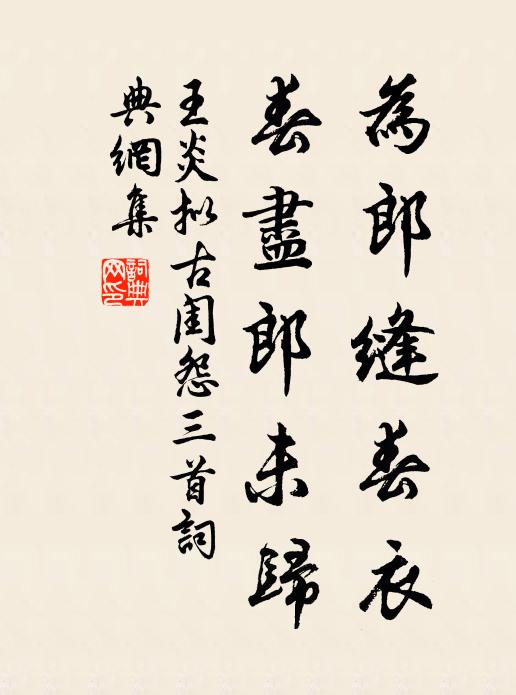 為郎縫春衣
春盡郎未歸
王炎拟古闺怨三首詞
典網集
詞典
网印